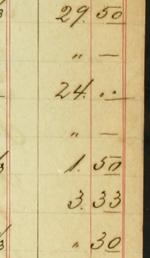 29. 50
" —
24. ..
" —
1. 50
3. 33
" 30